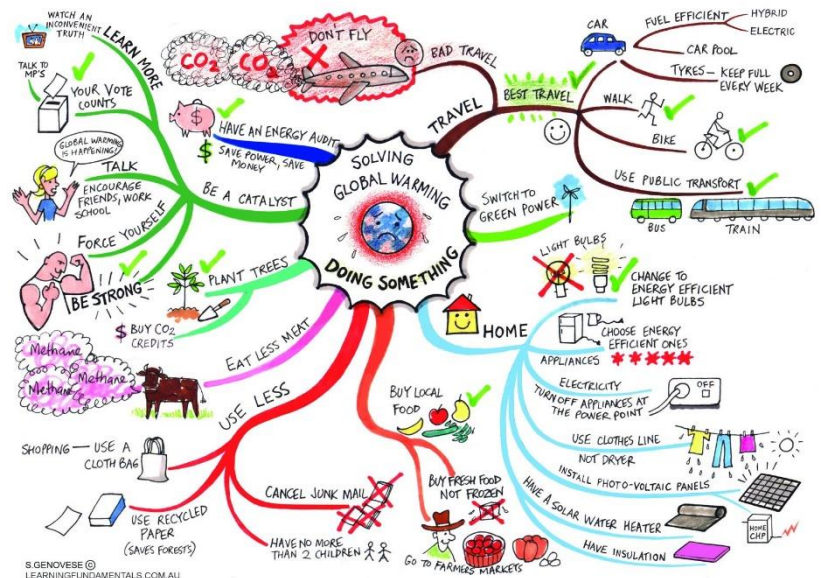 SOLVING
GLOBAL WARMING
DOING SOMETHING
TRAVEL
BAD TRAVEL
DON'T FLY
CO2
CO2
BEST TRAVEL
CAR
FUEL EFFICIENT
HYBRID
ELECTRIC
CAR POOL
TYRES — KEEP FULL
EVERY WEEK
WALK
BIKE
USE PUBLIC TRANSPORT
BUS
TRAIN
SWITCH TO
GREEN POWER
HOME
LIGHT BULBS
CHANGE TO
ENERGY EFFICIENT
LIGHT BULBS
APPLIANCES
CHOOSE ENERGY
EFFICIENT ONES
ELECTRICITY
TURN OFF APPLIANCES AT
THE POWER POINT
OFF
USE CLOTHES LINE
NOT DRYER
INSTALL PHOTO-VOLTAIC PANELS
HOME
CHP
HAVE A SOLAR WATER HEATER
HAVE INSULATION
BUY LOCAL
FOOD
BUY FRESH FOOD
NOT FROZEN
GO TO FARMERS MARKETS
USE LESS
SHOPPING — USE A
CLOTH BAG
USE RECYCLED
PAPER
(SAVES FORESTS)
CANCEL JUNK MAIL
HAVE NO MORE
THAN 2 CHILDREN
EAT LESS MEAT
Methane
Methane
Methane
PLANT TREES
$ BUY CO2
CREDITS
BE A CATALYST
LEARN MORE
WATCH AN
INCONVENIENT
TRUTH
TALK TO
MP'S
YOUR VOTE
COUNTS
GLOBAL WARMING
IS HAPPENING!
TALK
ENCOURAGE
FRIENDS, WORK
SCHOOL
FORCE YOURSELF
BE STRONG
HAVE AN ENERGY AUDIT
$
$ SAVE POWER, SAVE
MONEY
S.GENOVESE ©
LEARNINGFUNDAMENTALS.COM.AU